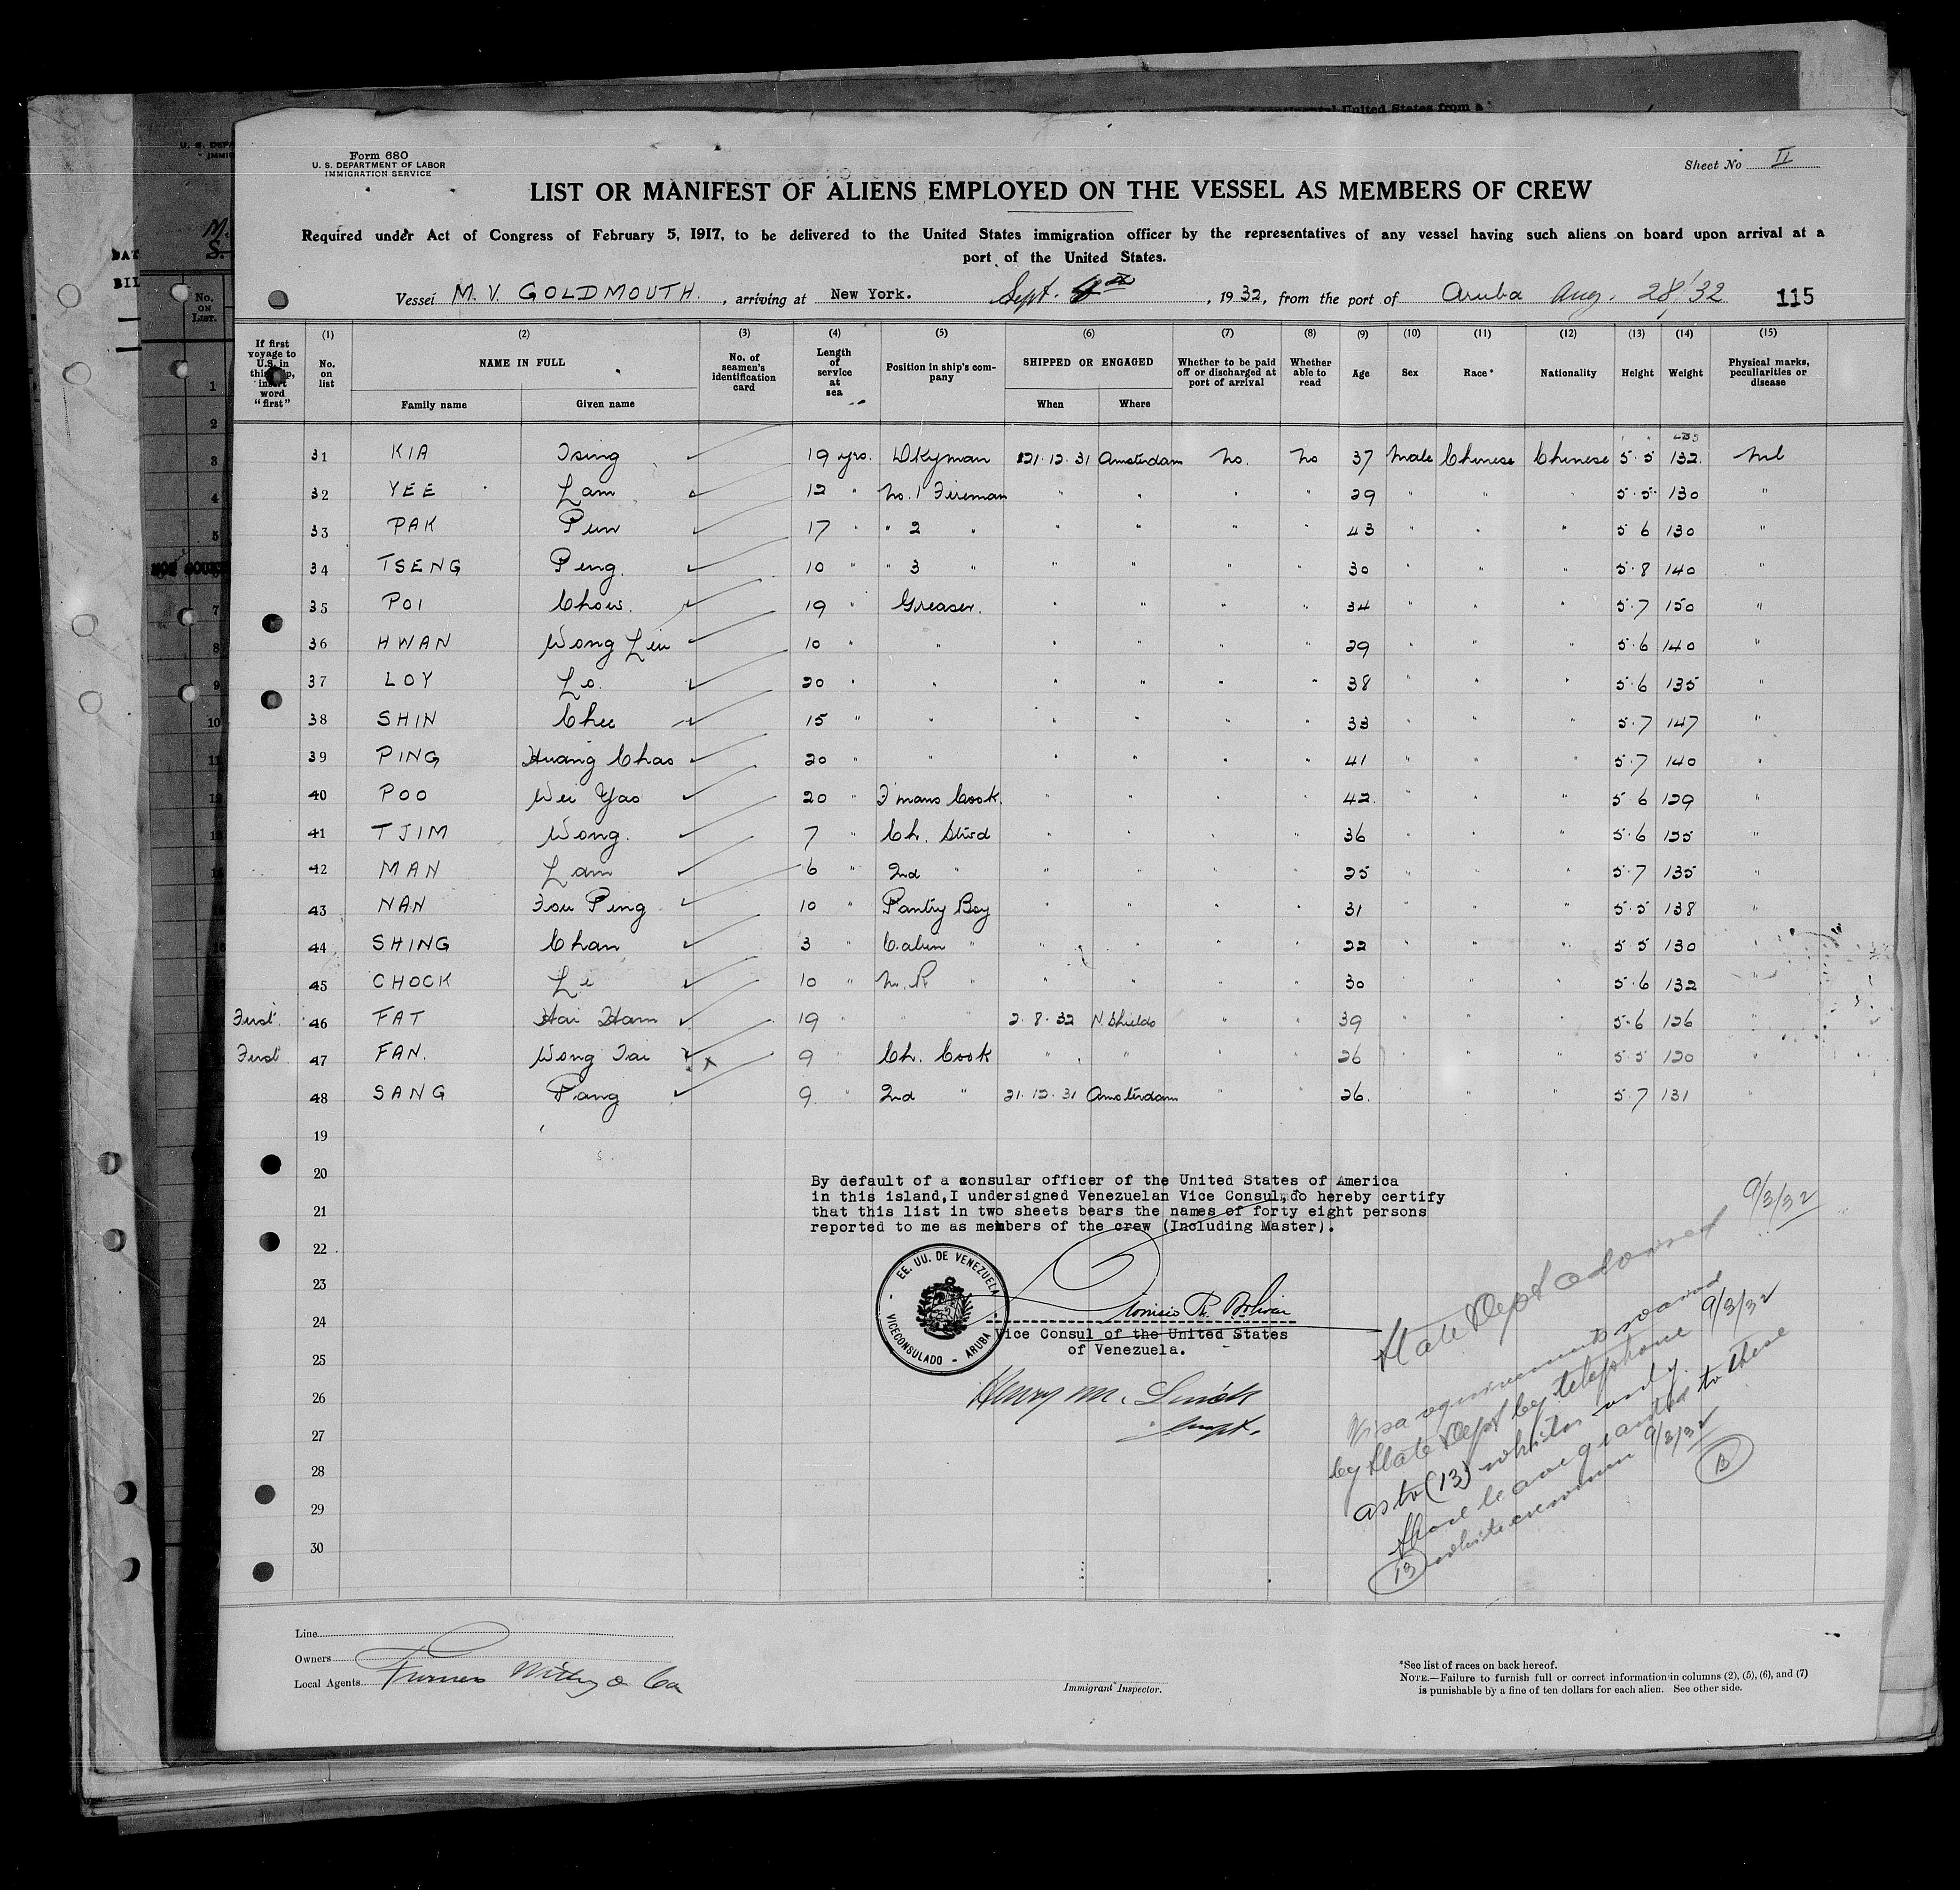 Form 680
U. S. DEPARTMENT OF LABOR
IMMIGRATION SERVICE
Sheet No II
LIST OR MANIFEST OF ALIENS EMPLOYED ON THE VESSEL AS MEMBERS OF CREW
Required under Act of Congress of February 5, 1917, to be delivered to the United States immigration officer by the representatives of any vessel having such aliens on board upon arrival at a
port of the United States.
Vessel M. V. GOLDMOUTH , arriving at New York. Sept. , 1932, from the port of Aruba Aug. 28/32 115
If first voyage to U.S. in this ship, insert word "first" (1) No. on list (2) NAME IN FULL Family name Given name (3) No. of seamen's identification card (4) Length of service at sea (5) Position in ship's company (6) SHIPPED OR ENGAGED When Where (7) Whether to be paid off or discharged at port of arrival (8) Whether able to read (9) Age (10) Sex (11) Race* (12) Nationality (13) Height (14) Weight (15) Physical marks, peculiarities or disease
31 KIA Tsing 19 yrs. Dkyman 21.12.31 Amsterdam No. No 37 Male Chinese Chinese 5.5 132 Nil
32 YEE Lam 12 " No. 1 Fireman " " " " 29 " " " 5.5 130 "
33 PAK Pun 17 " " 2 " " " " " 43 " " " 5 6 130 "
34 TSENG Peng. 10 " " 3 " " " " " 30 " " " 5.8 140 "
35 POI Chow. 19 " Greaser. " " " " 34 " " " 5.7 150 "
36 HWAN Wong Liu 10 " " " " " " 29 " " " 5.6 140 "
37 LOY Lo. 20 " " " " " " 38 " " " 5.6 135 "
38 SHIN Chee 15 " " " " " " 33 " " " 5.7 147 "
39 PING Huang Chao 20 " " " " " " 41 " " " 5.7 140 "
40 POO Wei Yao 20 " F'mans Cook. " " " " 42 " " " 5 6 129 "
41 TJIM Wong. 7 " Ch. Stwd " " " " 36 " " " 5.6 125 "
42 MAN Lam 6 " 2nd " " " " " 25 " " " 5.7 135 "
43 NAN Fou Ping 10 " Pantry Boy " " " " 31 " " " 5.5 138 "
44 SHING Chan 3 " Cabin " " " " " 22 " " " 5 5 130 "
45 CHOCK Li 10 " M. R. " " " " " 30 " " " 5.6 132 "
First 46 FAT Hai Ham 19 " " " 2.8.32 N. Shields " " 39 " " " 5.6 126 "
First 47 FAN. Wong Tai x 9 " Ch. Cook " " " " 26 " " " 5.5 120 "
48 SANG Pang 9 " 2nd " 21.12.31 Amsterdam " " 26. " " " 5.7 131 "
19
20
By default of a consular officer of the United States of America
in this island, I undersigned Venezuelan Vice Consul, do hereby certify
that this list in two sheets bears the names of forty eight persons
reported to me as members of the crew (Including Master).
21
22
23
24
25
26
27
28
29
30
EE. UU. DE VENEZUELA
VICECONSULADO - ARUBA
Vice Consul of the United States
of Venezuela.
Henry M.
9/3/32
State Dept advised
Visa requirements waived 9/3/32
by State Dept by telephone
as to (13) whites only.
Shore leave granted to these
13 white crewmen 9/3/32
B
Line
Owners
Local Agents Furness Withy & Co
Immigrant Inspector.
*See list of races on back hereof.
NOTE.—Failure to furnish full or correct information in columns (2), (5), (6), and (7)
is punishable by a fine of ten dollars for each alien. See other side.